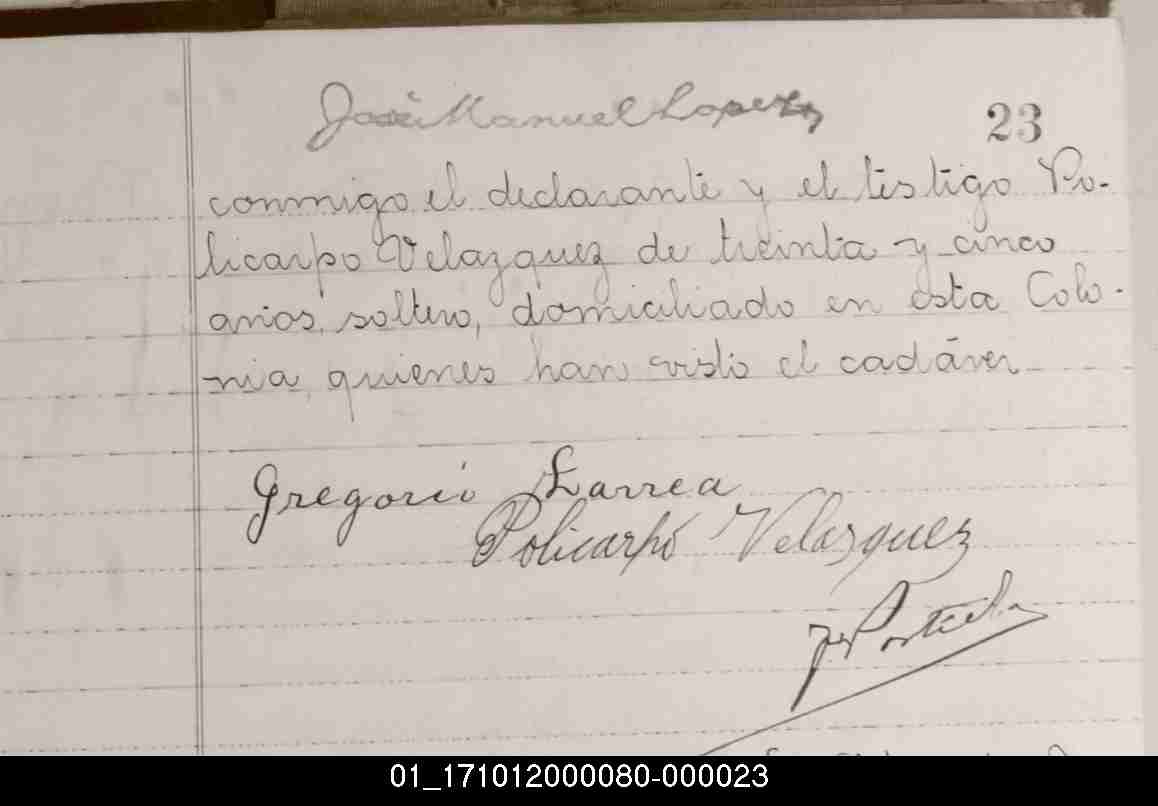 José Manuel Lopez
23
conmigo el declarante y el testigo Po-
licarpo Velazquez de treinta y cinco
años, soltero, domiciliado en esta Colo-
nia, quienes han visto el cadáver
Gregorio Larrea
Policarpo Velazquez
01_171012000080-000023